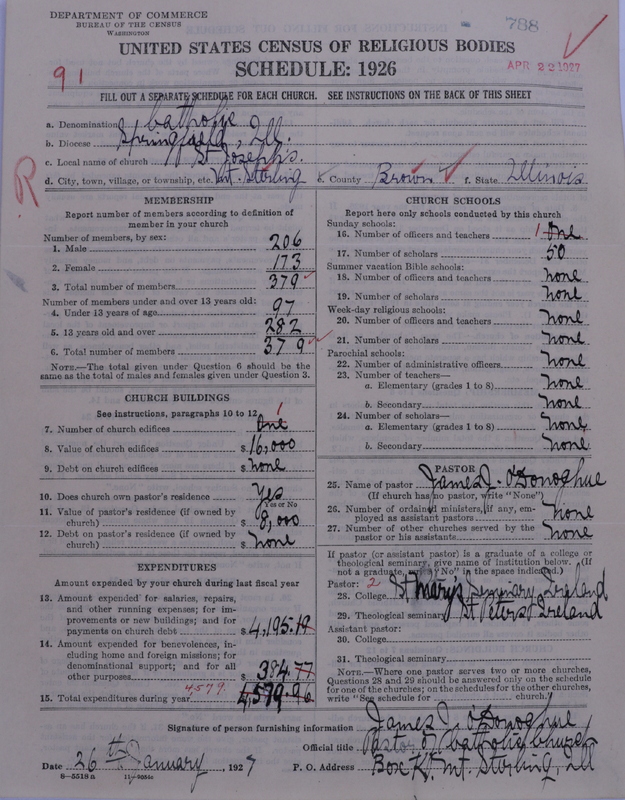 DEPARTMENT OF COMMERCE
BUREAU OF THE CENSUS
WASHINGTON
788
UNITED STATES CENSUS OF RELIGIOUS BODIES
SCHEDULE: 1926
APR 22 1927
91
FILL OUT A SEPARATE SCHEDULE FOR EACH CHURCH. SEE INSTRUCTIONS ON THE BACK OF THIS SHEET
a. Denomination Catholic
b. Diocese Springfield, Ill.
c. Local name of church St Joseph's.
d. City, town, village, or township, etc. Mt. Sterling e. County Brown f. State Illinois
R
MEMBERSHIP
Report number of members according to definition of
member in your church
Number of members, by sex:
1. Male 206
2. Female 173
3. Total number of members 379
Number of members under and over 13 years old:
4. Under 13 years of age 97
5. 13 years old and over 282
6. Total number of members 379
NOTE.—The total given under Question 6 should be
same as the total of males and females given under Question 3.
CHURCH BUILDINGS
See instructions, paragraphs 10 to 12
7. Number of church edifices One 1
8. Value of church edifices $16,000
9. Debt on church edifices $none
10. Does church own pastor's residence Yes
Yes or No
11. Value of pastor's residence (if owned by
church) $8,000
12. Debt on pastor's residence (if owned by
church) $none
EXPENDITURES
Amount expended by your church during last fiscal year
13. Amount expended for salaries, repairs,
and other running expenses; for im-
provements or new buildings; and for
payments on church debt $4,195.19
14. Amount expended for benevolences, in-
cluding home and foreign missions; for
denominational support; and for all
other purposes 384.77
15. Total expenditures during year 4579. 4,579.96
CHURCH SCHOOLS
Report here only schools conducted by this church
Sunday schools:
16. Number of officers and teachers 1 One
17. Number of scholars 50
Summer vacation Bible schools:
18. Number of officers and teachers none
19. Number of scholars none
Week-day religious schools:
20. Number of officers and teachers none
21. Number of scholars none
Parochial schools:
22. Number of administrative officers none
23. Number of teachers—
a. Elementary (grades 1 to 8) none
b. Secondary none
24. Number of scholars—
a. Elementary (grades 1 to 8) none
b. Secondary none
PASTOR
25. Name of pastor James J. O'Donoghue
(If church has no pastor, write "None")
26. Number of ordained ministers, if any, em-
ployed as assistant pastors none
27. Number of other churches served by the
pastor or his assistants none
If pastor (or assistant pastor) is a graduate of a college or
theological seminary, give name of institution below. (If
not a graduate, "No" in the space indicated.)
Pastor: 2
28. College St Mary's Seminary Ireland
29. Theological seminary St Peters Ireland
Assistant pastor:
30. College
31. Theological seminary
NOTE.—Where one pastor serves two or more churches,
Questions 28 and 29 should be answered only on the schedule
for one of the churches; on the schedules for the other churches,
write "See schedule for church."
Signature of person furnishing information James J. O'Donoghue
Official title Pastor of Catholic Church
Date 26th January, 1927 P. O. Address Box K. Mt. Sterling, Ill
8—5518 a